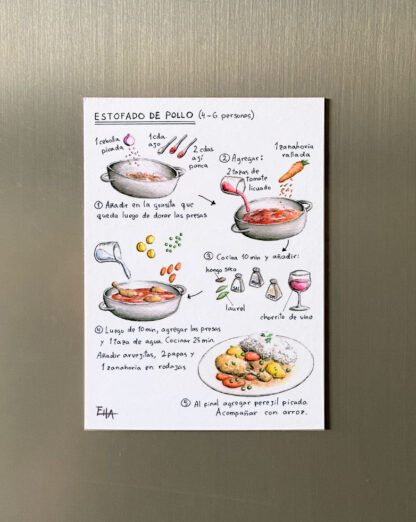 ESTOFADO DE POLLO (4-6 personas)
1 cebolla
picada
1 cda
ajo
2 cdas
ají
panca
① Añadir en la grasita que
queda luego de dorar las presas
② Agregar:
2 tazas de
tomate
licuado
1 zanahoria
rallada
③ Cocina 10 min y añadir:
hongo seco
laurel
chorrito de vino
④ Luego de 10 min, agregar las presas
y 1 taza de agua. Cocinar 25 min.
Añadir arvejitas, 2 papas y
1 zanahoria en rodajas
⑤ Al final agregar perejil picado.
Acompañar con arroz.